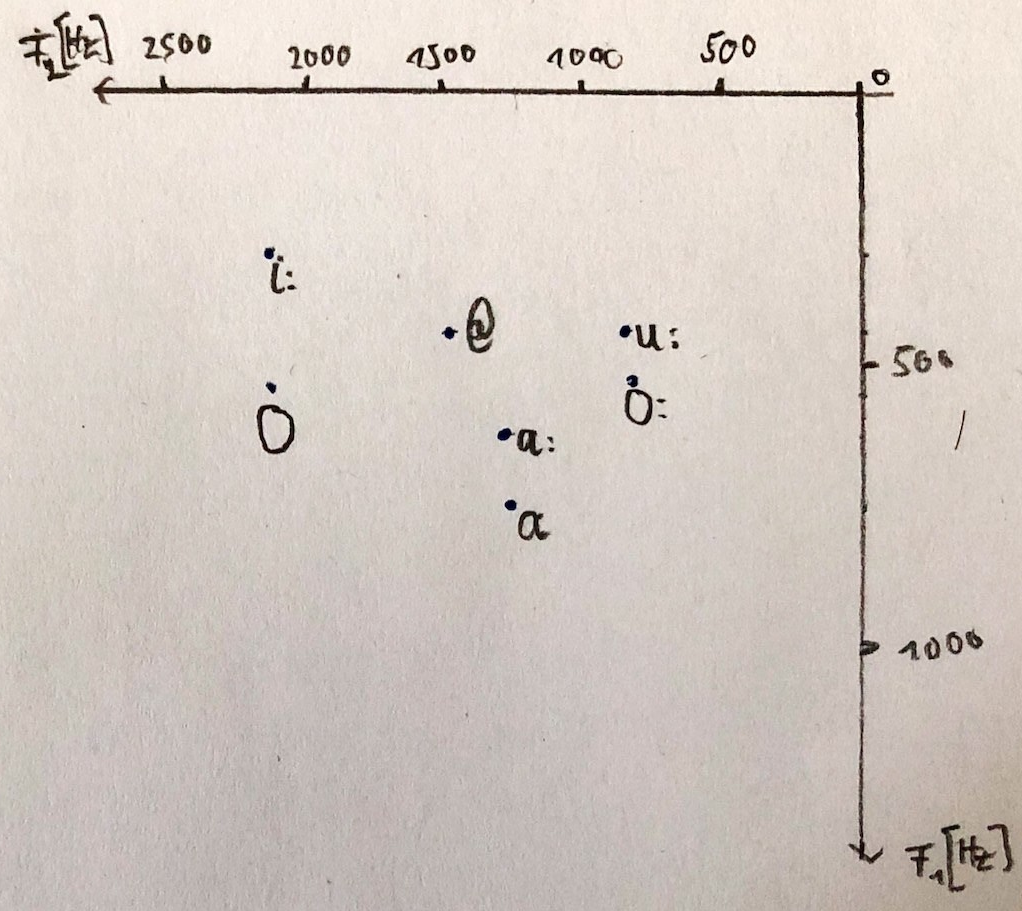 F₂[Hz] 2500 2000 1500 1000 500 0
i:
@ u:
500
O O:
a:
a
1000
F₁[Hz]